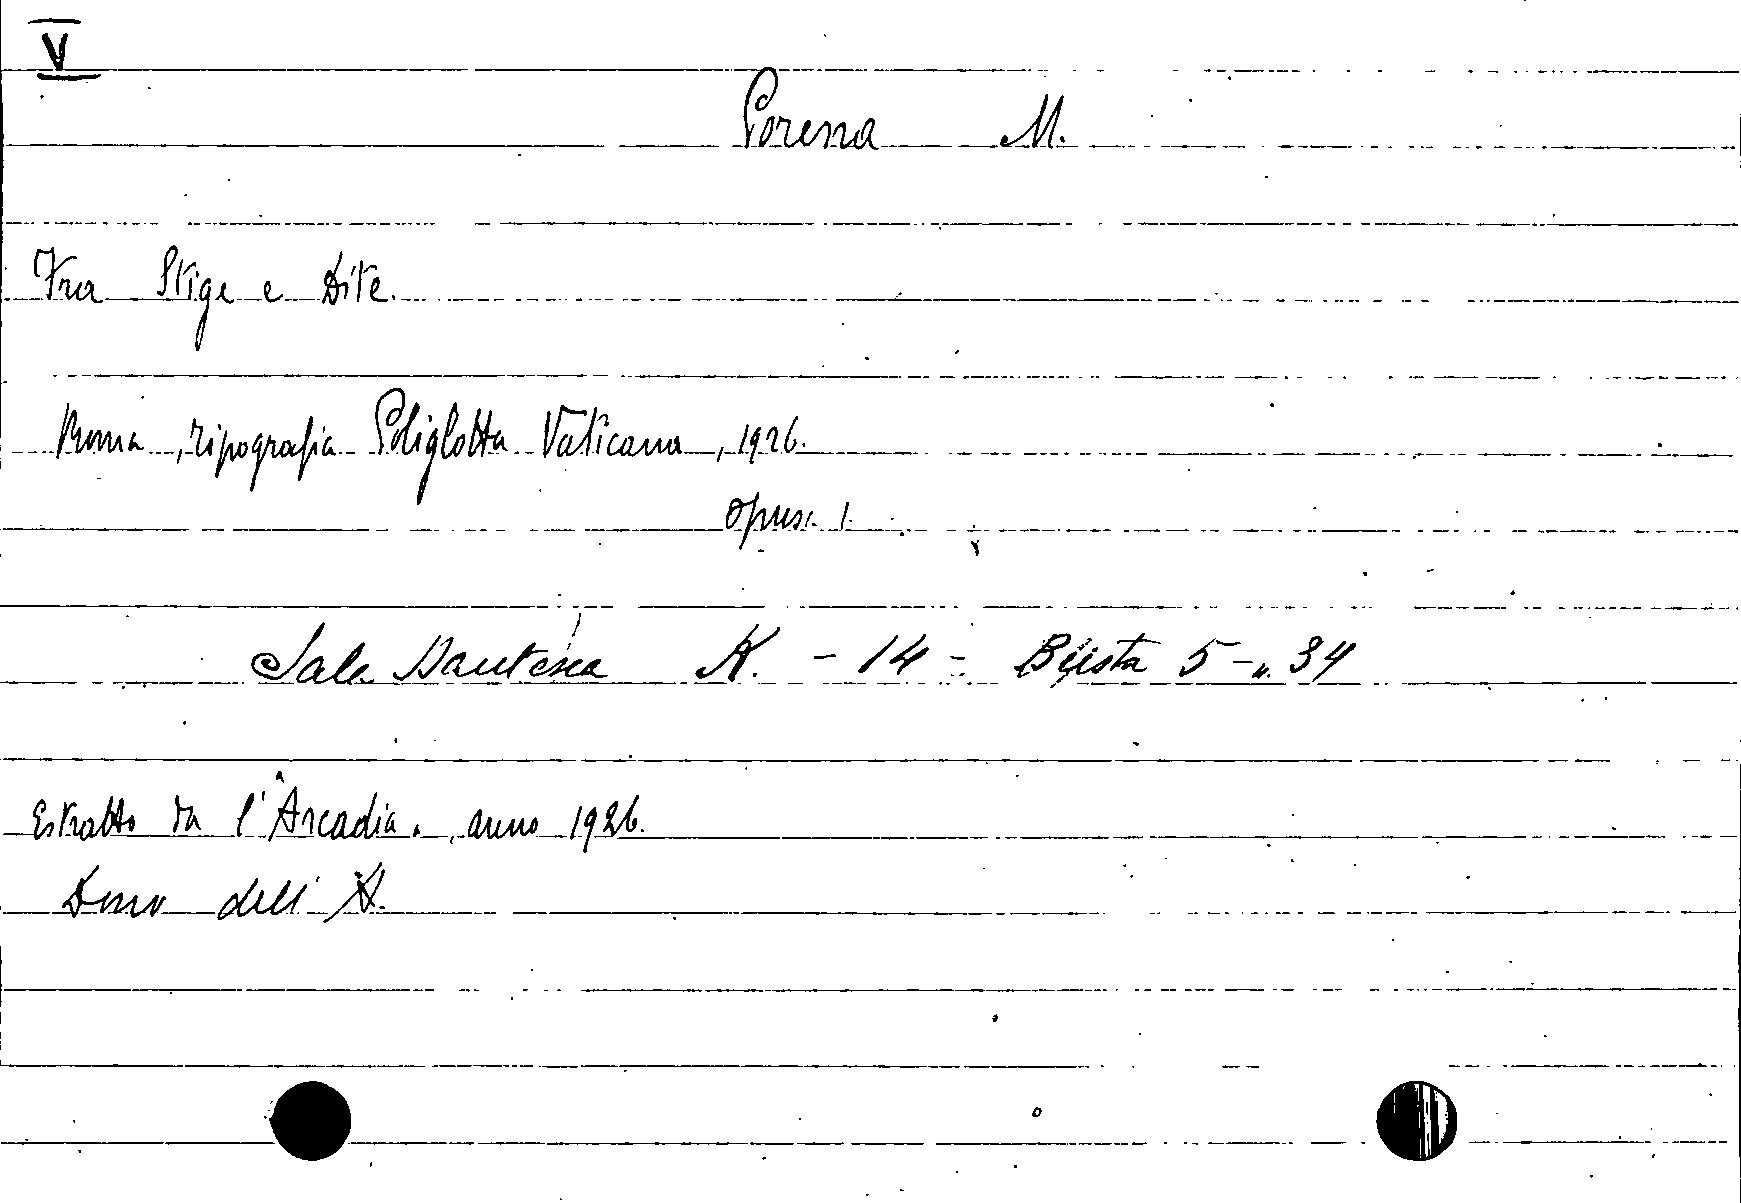 V
Porena M.
Fra Stige e Dite.
Roma, tipografia Poliglotta Vaticana, 1926.
opusc. 1.
Sala Dantesca K. - 14 - Busta 5 - n. 34
Estratto da l'Arcadia., anno 1926.
Dono dell'A.